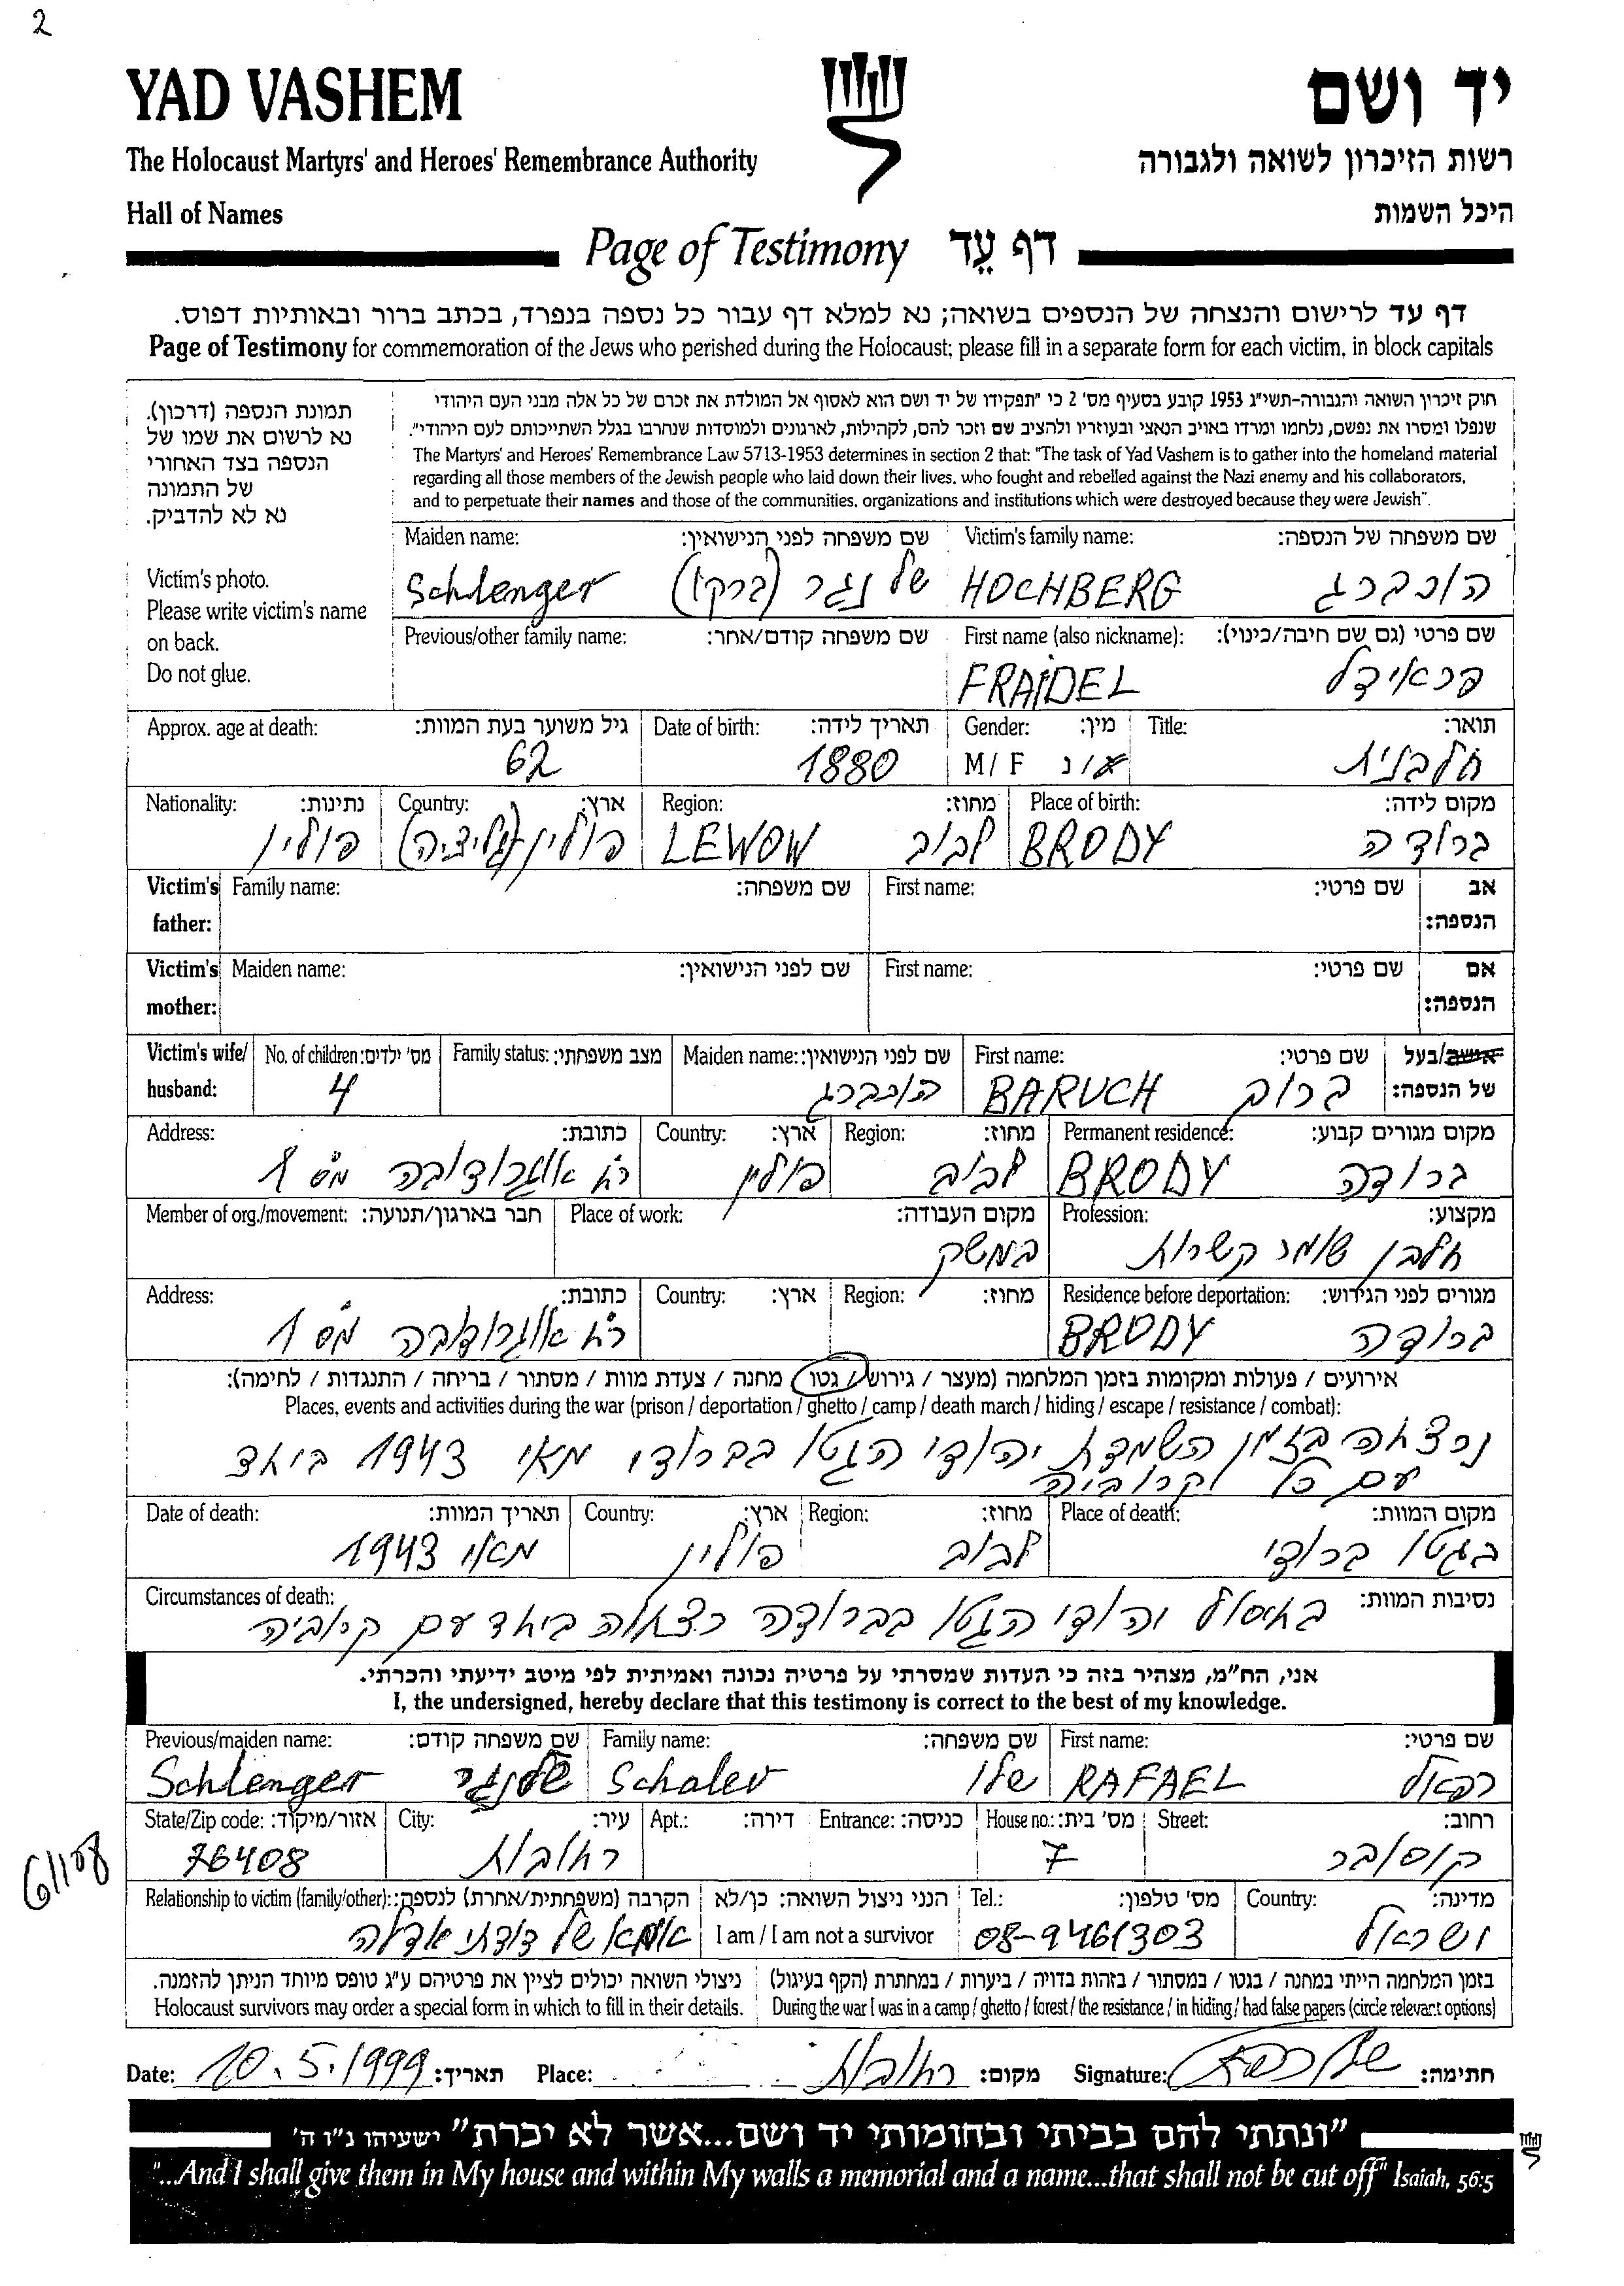 2
YAD VASHEM
יד ושם
The Holocaust Martyrs' and Heroes' Remembrance Authority
רשות הזיכרון לשואה ולגבורה
Hall of Names
היכל השמות
Page of Testimony דף עֵד
דף עד לרישום והנצחה של הנספים בשואה; נא למלא דף עבור כל נספה בנפרד, בכתב ברור ובאותיות דפוס.
Page of Testimony for commemoration of the Jews who perished during the Holocaust; please fill in a separate form for each victim, in block capitals
תמונת הנספה (דרכון).
נא לרשום את שמו של
הנספה בצד האחורי
של התמונה
נא לא להדביק.
Victim's photo.
Please write victim's name
on back.
Do not glue.
חוק זיכרון השואה והגבורה-תשי"ג 1953 קובע בסעיף מס' 2 כי "תפקידו של יד ושם הוא לאסוף אל המולדת את זכרם של כל אלה מבני העם היהודי
שנפלו ומסרו את נפשם, נלחמו ומרדו באויב הנאצי ובעוזריו ולהציב שם וזכר להם, לקהילות, לארגונים ולמוסדות שנחרבו בגלל השתייכותם לעם היהודי".
The Martyrs' and Heroes' Remembrance Law 5713-1953 determines in section 2 that: "The task of Yad Vashem is to gather into the homeland material
regarding all those members of the Jewish people who laid down their lives, who fought and rebelled against the Nazi enemy and his collaborators,
and to perpetuate their names and those of the communities, organizations and institutions which were destroyed because they were Jewish".
Maiden name: שם משפחה לפני הנישואין: Victim's family name: שם משפחה של הנספה:
Schlenger שלנגר (ברקו) HOCHBERG הוכברג
Previous/other family name: שם משפחה קודם/אחר: First name (also nickname): שם פרטי (גם שם חיבה/כינוי):
FRAIDEL פראידל
Approx. age at death: גיל משוער בעת המוות: Date of birth: תאריך לידה: Gender: מין: Title: תואר:
62 1880 M/ F ז/נ חלבנית
Nationality: נתינות: Country: ארץ: Region: מחוז: Place of birth: מקום לידה:
פולין פולין (גליציה) LEWOW לבוב BRODY ברודה
Victim's father: Family name: שם משפחה: First name: שם פרטי: אב הנספה:
Victim's mother: Maiden name: שם לפני הנישואין: First name: שם פרטי: אם הנספה:
Victim's wife/ husband: No. of children: מס' ילדים: Family status: מצב משפחתי: Maiden name: שם לפני הנישואין: First name: שם פרטי: אישה/בעל של הנספה:
4 הוכברג BARUCH ברוב
Address: כתובת: Country: ארץ: Region: מחוז: Permanent residence: מקום מגורים קבוע:
רח' אוגרודובה מס' 1 פולין לבוב BRODY ברודה
Member of org./movement: חבר בארגון/תנועה: Place of work: מקום העבודה: Profession: מקצוע:
במשק חלבן שומר כשרות
Address: כתובת: Country: ארץ: Region: מחוז: Residence before deportation: מגורים לפני הגירוש:
רח' אוגרודובה מס' 1 BRODY ברודה
אירועים / פעולות ומקומות בזמן המלחמה (מעצר / גירוש / גטו / מחנה / צעדת מוות / מסתור / בריחה / התנגדות / לחימה):
Places, events and activities during the war (prison / deportation / ghetto / camp / death march / hiding / escape / resistance / combat):
נרצחה בזמן השמדת יהודי הגטו בברודי מאי 1943 ביחד
עם כל קרוביה
Date of death: תאריך המוות: Country: ארץ: Region: מחוז: Place of death: מקום המוות:
מאי 1943 פולין לבוב בגטו ברודי
Circumstances of death: נסיבות המוות:
בחיסול יהודי הגטו בברודה נצחלה ביחד עם קרוביה
אני, הח"מ, מצהיר בזה כי העדות שמסרתי על פרטיה נכונה ואמיתית לפי מיטב ידיעתי והכרתי.
I, the undersigned, hereby declare that this testimony is correct to the best of my knowledge.
Previous/maiden name: שם משפחה קודם: Family name: שם משפחה: First name: שם פרטי:
Schlenger שלנגר Schalev שלו RAFAEL רפאל
State/Zip code: אזור/מיקוד: City: עיר: Apt.: דירה: Entrance: כניסה: House no.: מס' בית: Street: רחוב:
76408 רחובות 7 קוסובר
61108
Relationship to victim (family/other): הקרבה (משפחתית/אחרת) לנספה: הנני ניצול השואה: כן/לא Tel.: מס' טלפון: Country: מדינה:
אמא של דודתי אדלה I am / I am not a survivor 08-9461303 ישראל
ניצולי השואה יכולים לציין את פרטיהם ע"ג טופס מיוחד הניתן להזמנה. בזמן המלחמה הייתי במחנה / בגטו / במסתור / בזהות בדויה / ביערות / במחתרת (הקף בעיגול)
Holocaust survivors may order a special form in which to fill in their details. During the war I was in a camp / ghetto / forest / the resistance / in hiding / had false papers (circle relevant options)
Date: 10.5.1999 תאריך: Place: רחובות מקום: Signature: חתימה:
"ונתתי להם בביתי ובחומותי יד ושם...אשר לא יכרת" ישעיהו נ"ו ה'
"...And I shall give them in My house and within My walls a memorial and a name...that shall not be cut off" Isaiah, 56:5